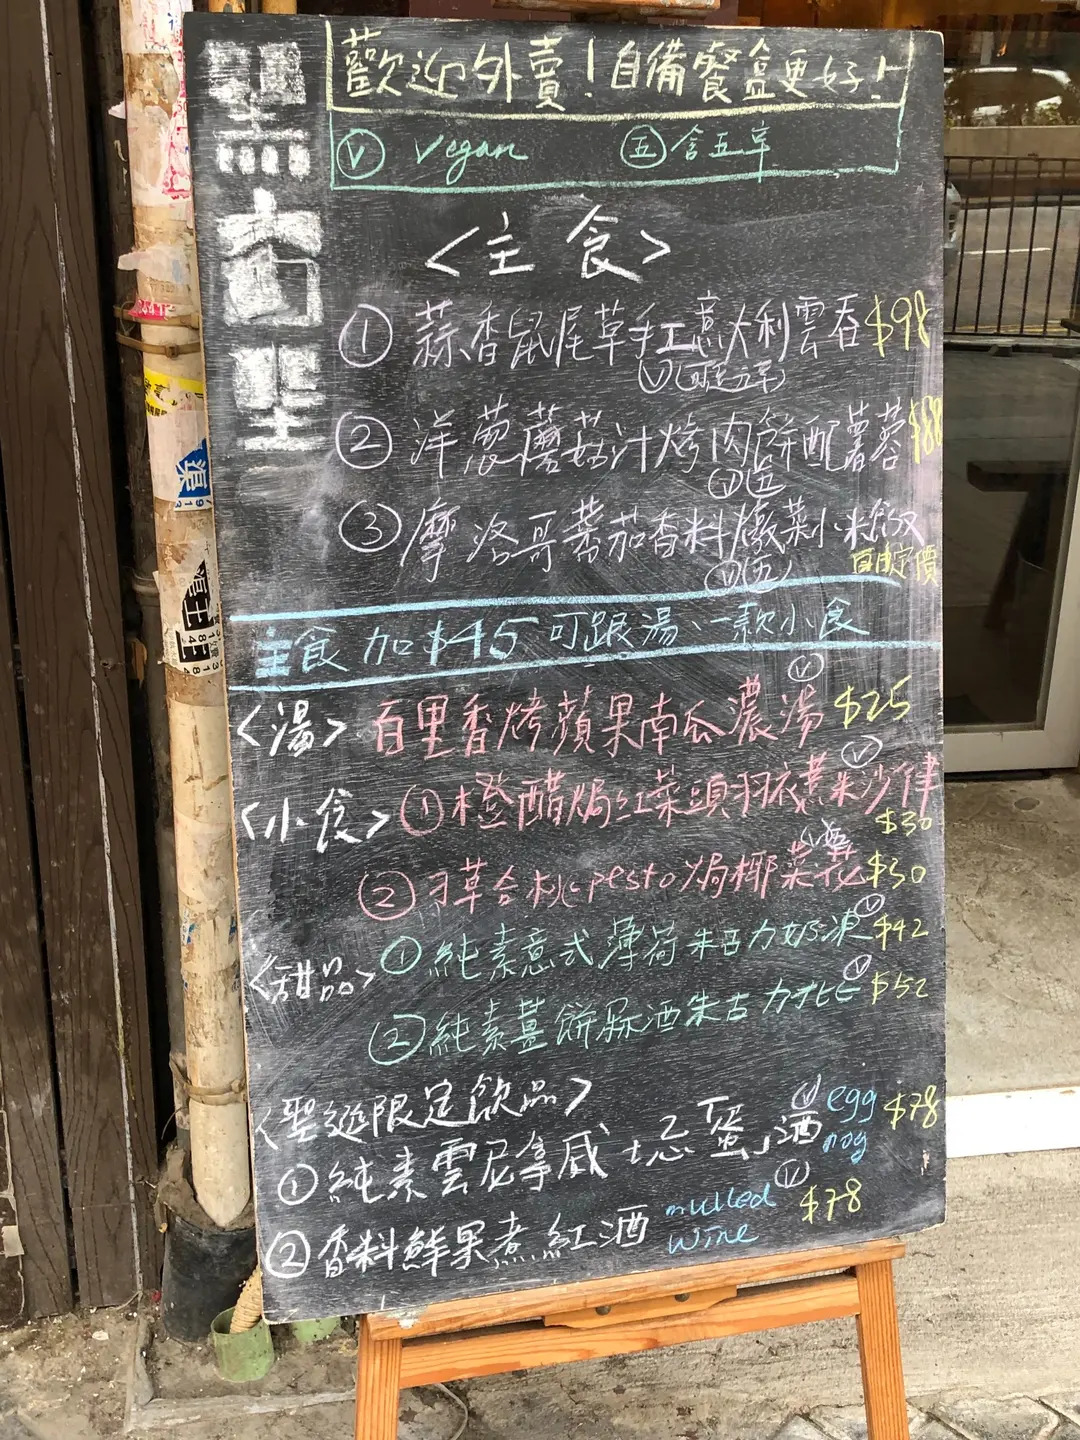 黑窗里
歡迎外賣！自備餐盒更好！
Ⓥ Vegan ㊄ 含五辛
<主食>
① 蒜香鼠尾草手工意大利雲吞 $98
Ⓥ(可走五辛)
② 洋蔥蘑菇汁烤肉餅配薯蓉 $88
Ⓥ㊄
③ 摩洛哥蕃茄香料燉菜小米飯
Ⓥ㊄ 自由定價
主食加$45可跟湯、一款小食
<湯> 百里香烤蘋果南瓜濃湯 Ⓥ $25
<小食> ① 橙醋焗紅菜頭羽衣黃朱沙律 Ⓥ $30
② 刁草合桃pesto焗椰菜花 $30
<甜品> ① 純素意式薄荷朱古力奶凍 Ⓥ $42
② 純素薑餅冧酒朱古力 Ⓥ $52
<聖誕限定飲品>
① 純素雲尼拿威士忌「蛋」酒 Ⓥ egg nog $78
② 香料鮮果煮紅酒 mulled wine Ⓥ $78